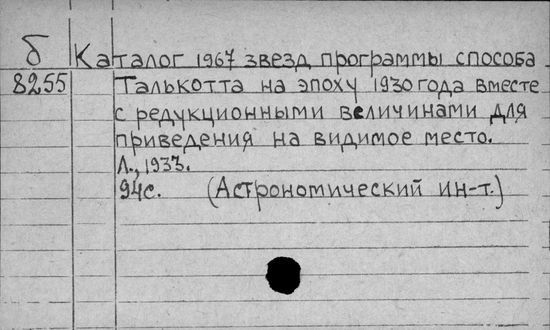 б Каталог 1967 звезд программы способа
8255 Талькотта на эпоху 1930 года вместе
с редукционными величинами для
приведения на видимое место.
Л., 1933.
94с. (Астрономический ин-т.)